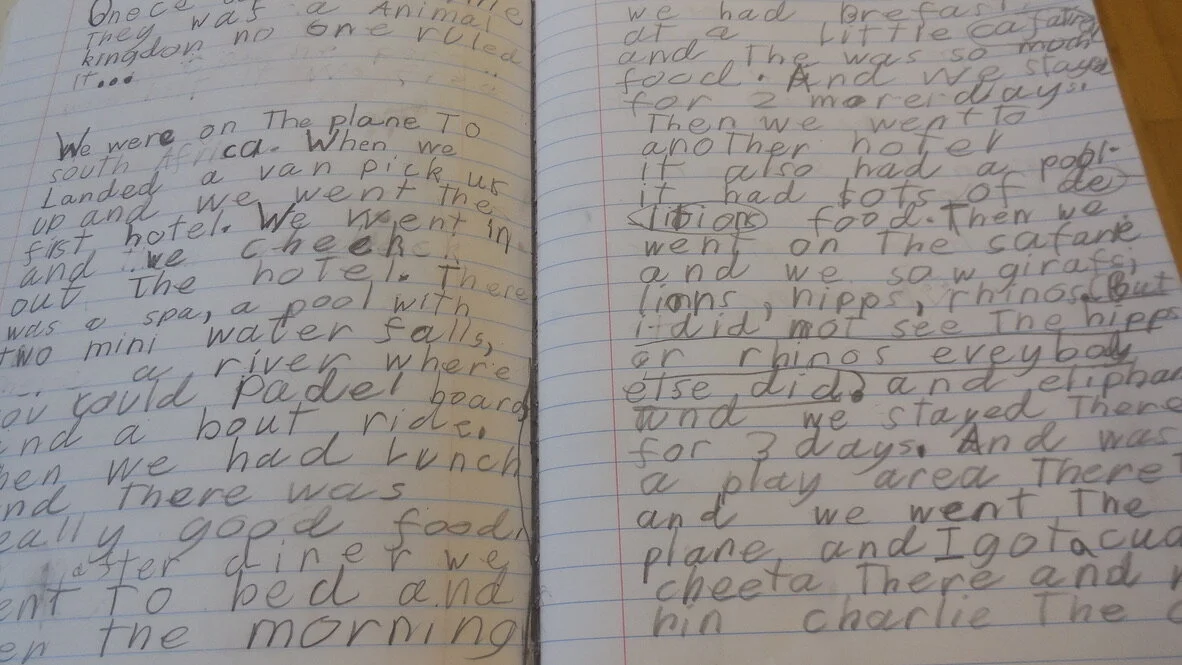 Onece
They was a Animal
kingdon no one ruled
it...
We were on The plane To
south Africa. When we
Landed a van pick us
up and we went the
fist hotel. We went in
and we cheek
out the hotel. There
was a spa, a pool with
two mini water falls,
a river where
you could Padel board
and a bout ride.
hen we had Lunch
nd There was
eally good food.
after diner we
ent To bed and
en the morning
we had brefast
at a Little
and The was so moch
food. And we stayed
for 2 more days.
Then we went To
another hotel
it also had a pool.
it had tots of de
litions food. Then we
went on The safarie
and we sow girafs,
lions, hipps, rhinos. But
i did not see The hipps
or rhinos eveybody
else did. and eliphan
and we stayed There
for 3 days. And was
a play area There
and we went The
plane and I got a cud
cheeta There and n
hin charlie The c